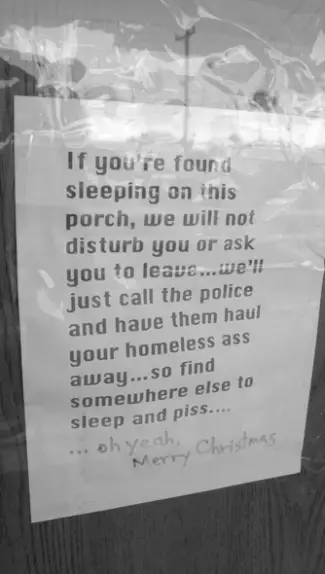 If you're found
sleeping on this
porch, we will not
disturb you or ask
you to leave...we'll
just call the police
and have them haul
your homeless ass
away...so find
somewhere else to
sleep and piss....
... oh yeah,
Merry Christmas